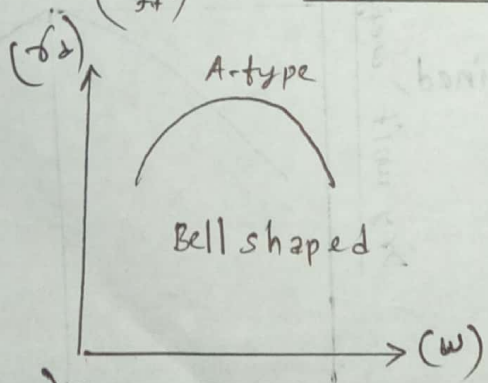 A-type
(γd)
Bell shaped
(w)